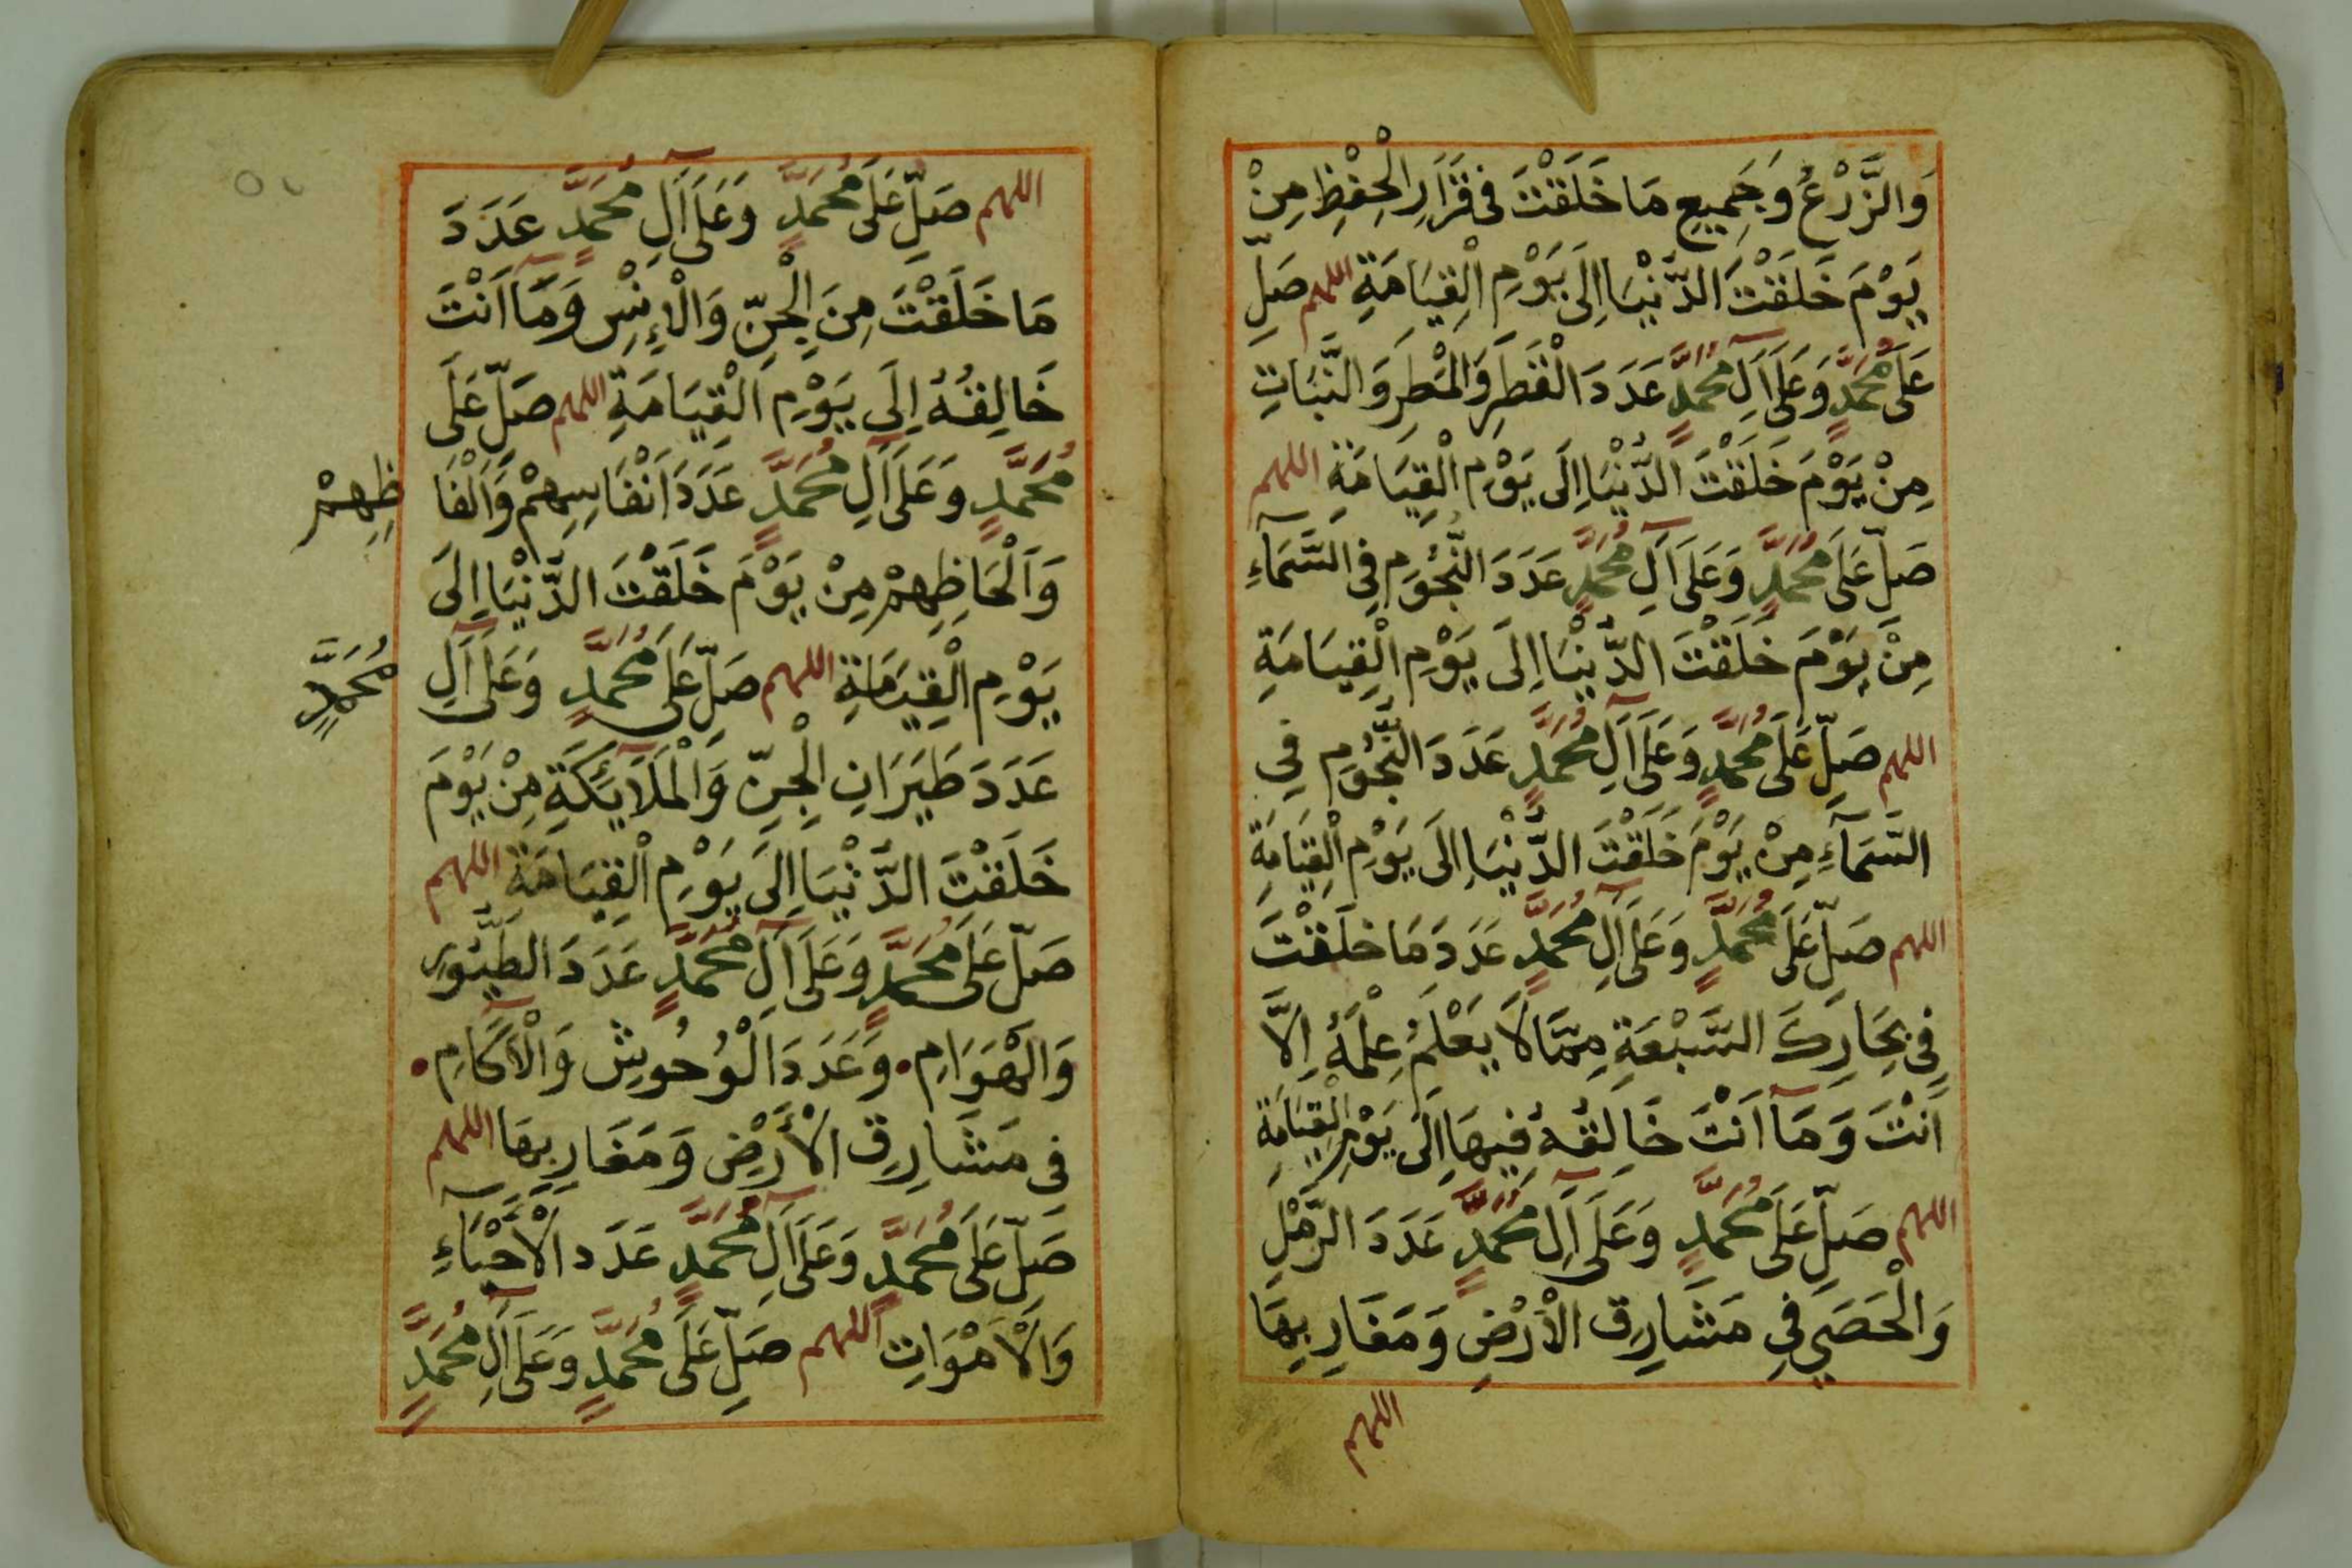 وَالزَّرْعِ وَجَمِيعِ مَا خَلَقْتَ فِى قَرَارِ الْحِفْظِ مِنْ
يَوْمَ خَلَقْتَ الدُّنْيَا اِلَى يَوْمِ الْقِيَامَةِ اللهم صَلِّ
عَلَى مُحَمَّدٍ وَعَلَى آلِ مُحَمَّدٍ عَدَدَ الْقَطَرِ وَالْمَطَرِ وَالنَّبَاتِ
مِنْ يَوْمَ خَلَقْتَ الدُّنْيَا اِلَى يَوْمِ الْقِيَامَةِ اللهم
صَلِّ عَلَى مُحَمَّدٍ وَعَلَى آلِ مُحَمَّدٍ عَدَدَ النُّجُومِ فِى السَّمَآءِ
مِنْ يَوْمَ خَلَقْتَ الدُّنْيَا اِلَى يَوْمِ الْقِيَامَةِ
اللهم صَلِّ عَلَى مُحَمَّدٍ وَعَلَى آلِ مُحَمَّدٍ عَدَدَ النُّجُومِ فِى
السَّمَآءِ مِنْ يَوْمَ خَلَقْتَ الدُّنْيَا اِلَى يَوْمِ الْقِيَامَةِ
اللهم صَلِّ عَلَى مُحَمَّدٍ وَعَلَى آلِ مُحَمَّدٍ عَدَدَ مَا خَلَقْتَ
فِى بِحَارِكَ السَّبْعَةِ مِمَّا لَا يَعْلَمُ عِلْمَهُ اِلَّا
اَنْتَ وَمَآ اَنْتَ خَالِقُهُ فِيهَا اِلَى يَوْمِ الْقِيَامَةِ
اللهم صَلِّ عَلَى مُحَمَّدٍ وَعَلَى آلِ مُحَمَّدٍ عَدَدَ الرَّمْلِ
وَالْحَصَى فِى مَشَارِقِ الْأَرْضِ وَمَغَارِبِهَا
اللهم
اللهم صَلِّ عَلَى مُحَمَّدٍ وَعَلَى آلِ مُحَمَّدٍ عَدَدَ
مَا خَلَقْتَ مِنَ الْجِنِّ وَالْاِنْسِ وَمَآ اَنْتَ
خَالِقُهُ اِلَى يَوْمِ الْقِيَامَةِ اللهم صَلِّ عَلَى
مُحَمَّدٍ وَعَلَى آلِ مُحَمَّدٍ عَدَدَ اَنْفَاسِهِمْ وَاَلْفَا
ظِهِمْ
وَاَلْحَاظِهِمْ مِنْ يَوْمَ خَلَقْتَ الدُّنْيَا اِلَى
يَوْمِ الْقِيَمَامَةِ اللهم صَلِّ عَلَى مُحَمَّدٍ وَعَلَى آلِ
مُحَمَّدٍ
عَدَدَ طَيَرَانِ الْجِنِّ وَالْمَلَآئِكَةِ مِنْ يَوْمَ
خَلَقْتَ الدُّنْيَا اِلَى يَوْمِ الْقِيَامَةِ اللهم
صَلِّ عَلَى مُحَمَّدٍ وَعَلَى آلِ مُحَمَّدٍ عَدَدَ الطُّيُورِ
وَالْهَوَامِ. وَعَدَدَ الْوُحُوشِ وَالْآكَامِ.
فِى مَشَارِقِ الْأَرْضِ وَمَغَارِبِهَا اللهم
صَلِّ عَلَى مُحَمَّدٍ وَعَلَى آلِ مُحَمَّدٍ عَدَد الْأَحْيَآءِ
وَالْأَمْوَاتِ اللهم صَلِّ عَلَى مُحَمَّدٍ وَعَلَى آلِ مُحَمَّدٍ